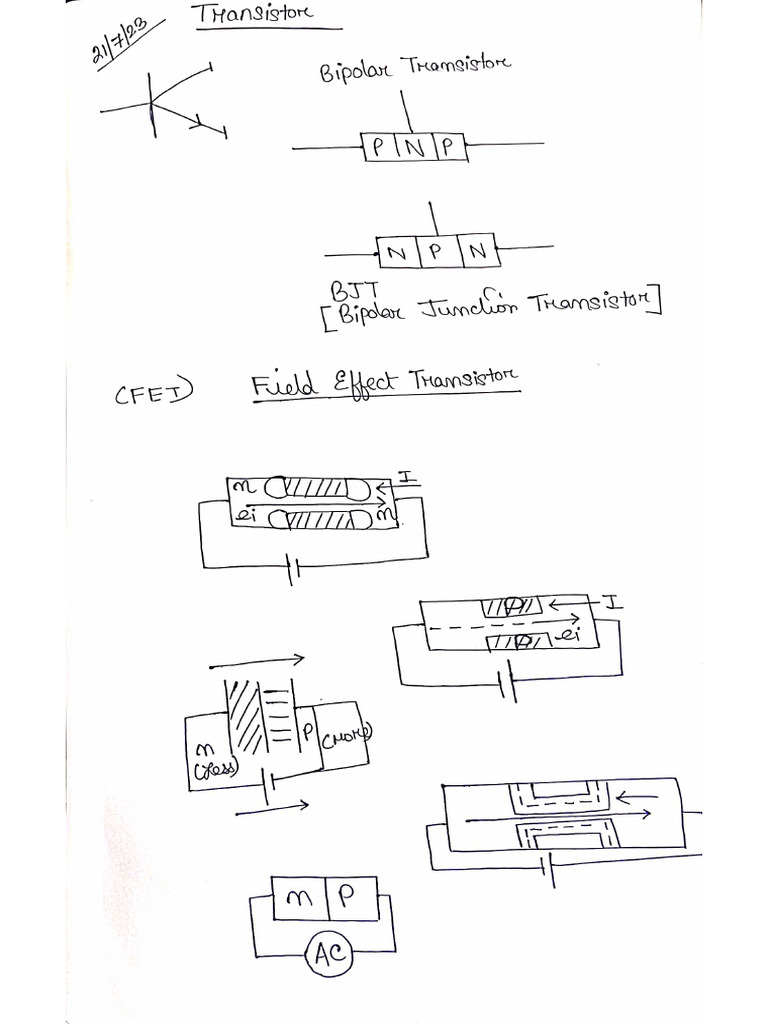 Transistor
21/7/23
Bipolar Transistor
P N P
N P N
BJT
[Bipolar Junction Transistor]
(FET) Field Effect Transistor
n I
ei n
P I
P ei
n P (More)
(Less)
n P
AC